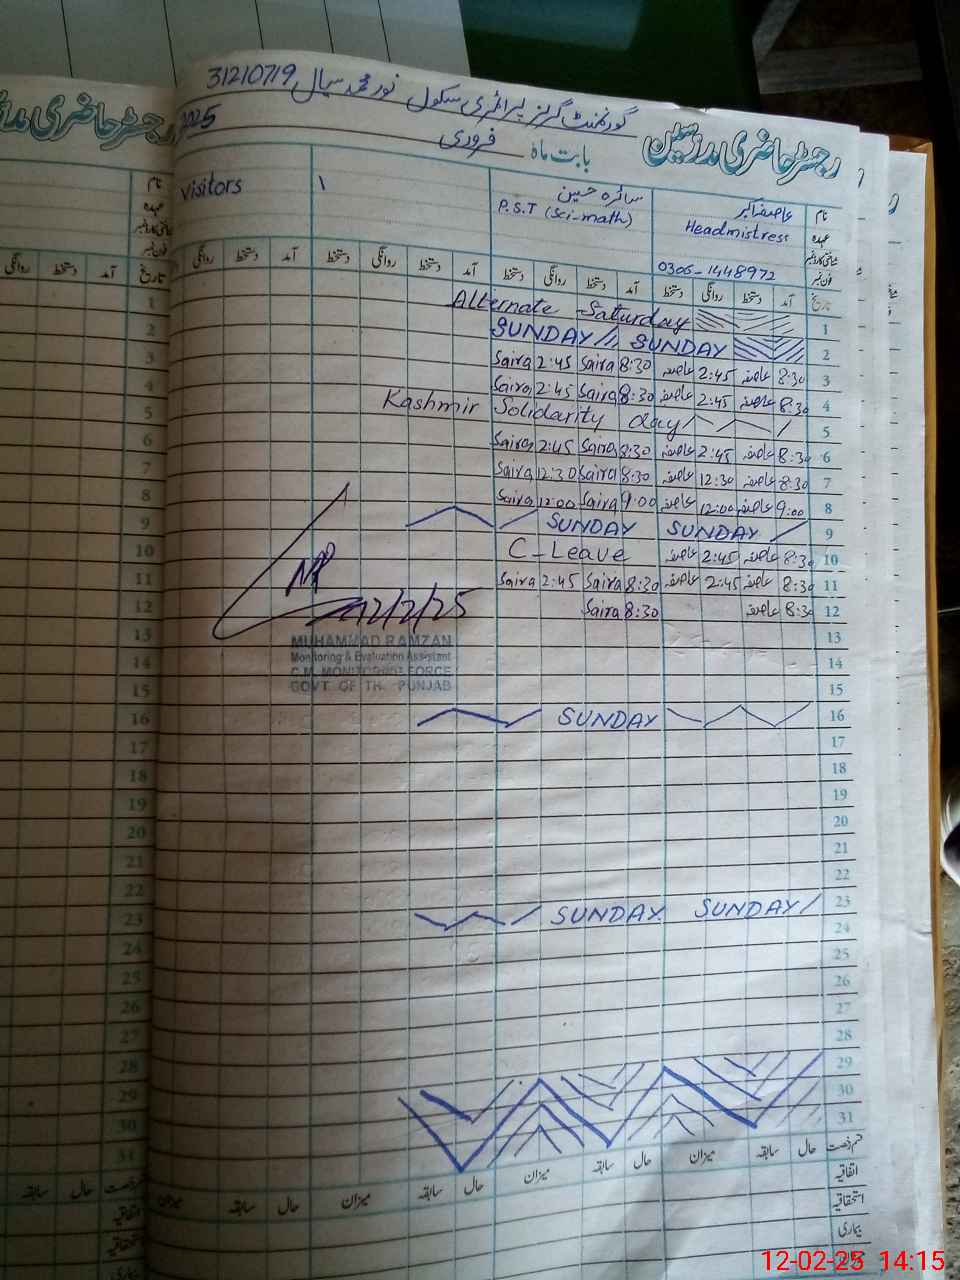 گورنمنٹ گرلز پرائمری سکول نور محمد سیال 31210719
رجسٹر حاضری مدرسین
بابت ماہ فروری 2025
نام عاصفہ اکبر سائرہ حسین ١ Visitors
عہدہ Headmistress P.S.T (Sci-math)
فون نمبر 0306-1448972
تاریخ آمد دستخط روانگی دستخط آمد دستخط روانگی دستخط آمد دستخط روانگی دستخط آمد دستخط روانگی
1 Alternate Saturday
2 SUNDAY SUNDAY
3 8:30 عاصفہ 2:45 عاصفہ 8:30 Saira 2:45 Saira
4 8:30 عاصفہ 2:45 عاصفہ 8:30 Saira 2:45 Saira
5 Kashmir Solidarity day
6 8:30 عاصفہ 2:45 عاصفہ 8:30 Saira 2:45 Saira
7 8:30 عاصفہ 12:30 عاصفہ 8:30 Saira 12:30 Saira
8 9:00 عاصفہ 12:00 عاصفہ 9:00 Saira 12:00 Saira
9 SUNDAY SUNDAY
10 8:30 عاصفہ 2:45 عاصفہ C-Leave
11 8:30 عاصفہ 2:45 عاصفہ 8:30 Saira 2:45 Saira
12 8:30 عاصفہ 8:30 Saira
12/2/25
13
MUHAMMAD RAMZAN
Monitoring & Evaluation Assistant
C.M. MONITORING FORCE
GOVT OF THE PUNJAB
14
15
16 SUNDAY
17
18
19
20
21
22
23 SUNDAY SUNDAY
24
25
26
27
28
29
30
31
قسم رخصت حال سابقہ میزان حال سابقہ میزان حال سابقہ میزان حال سابقہ میزان
اتفاقیہ
استحقاقیہ
بیماری
12-02-25 14:15